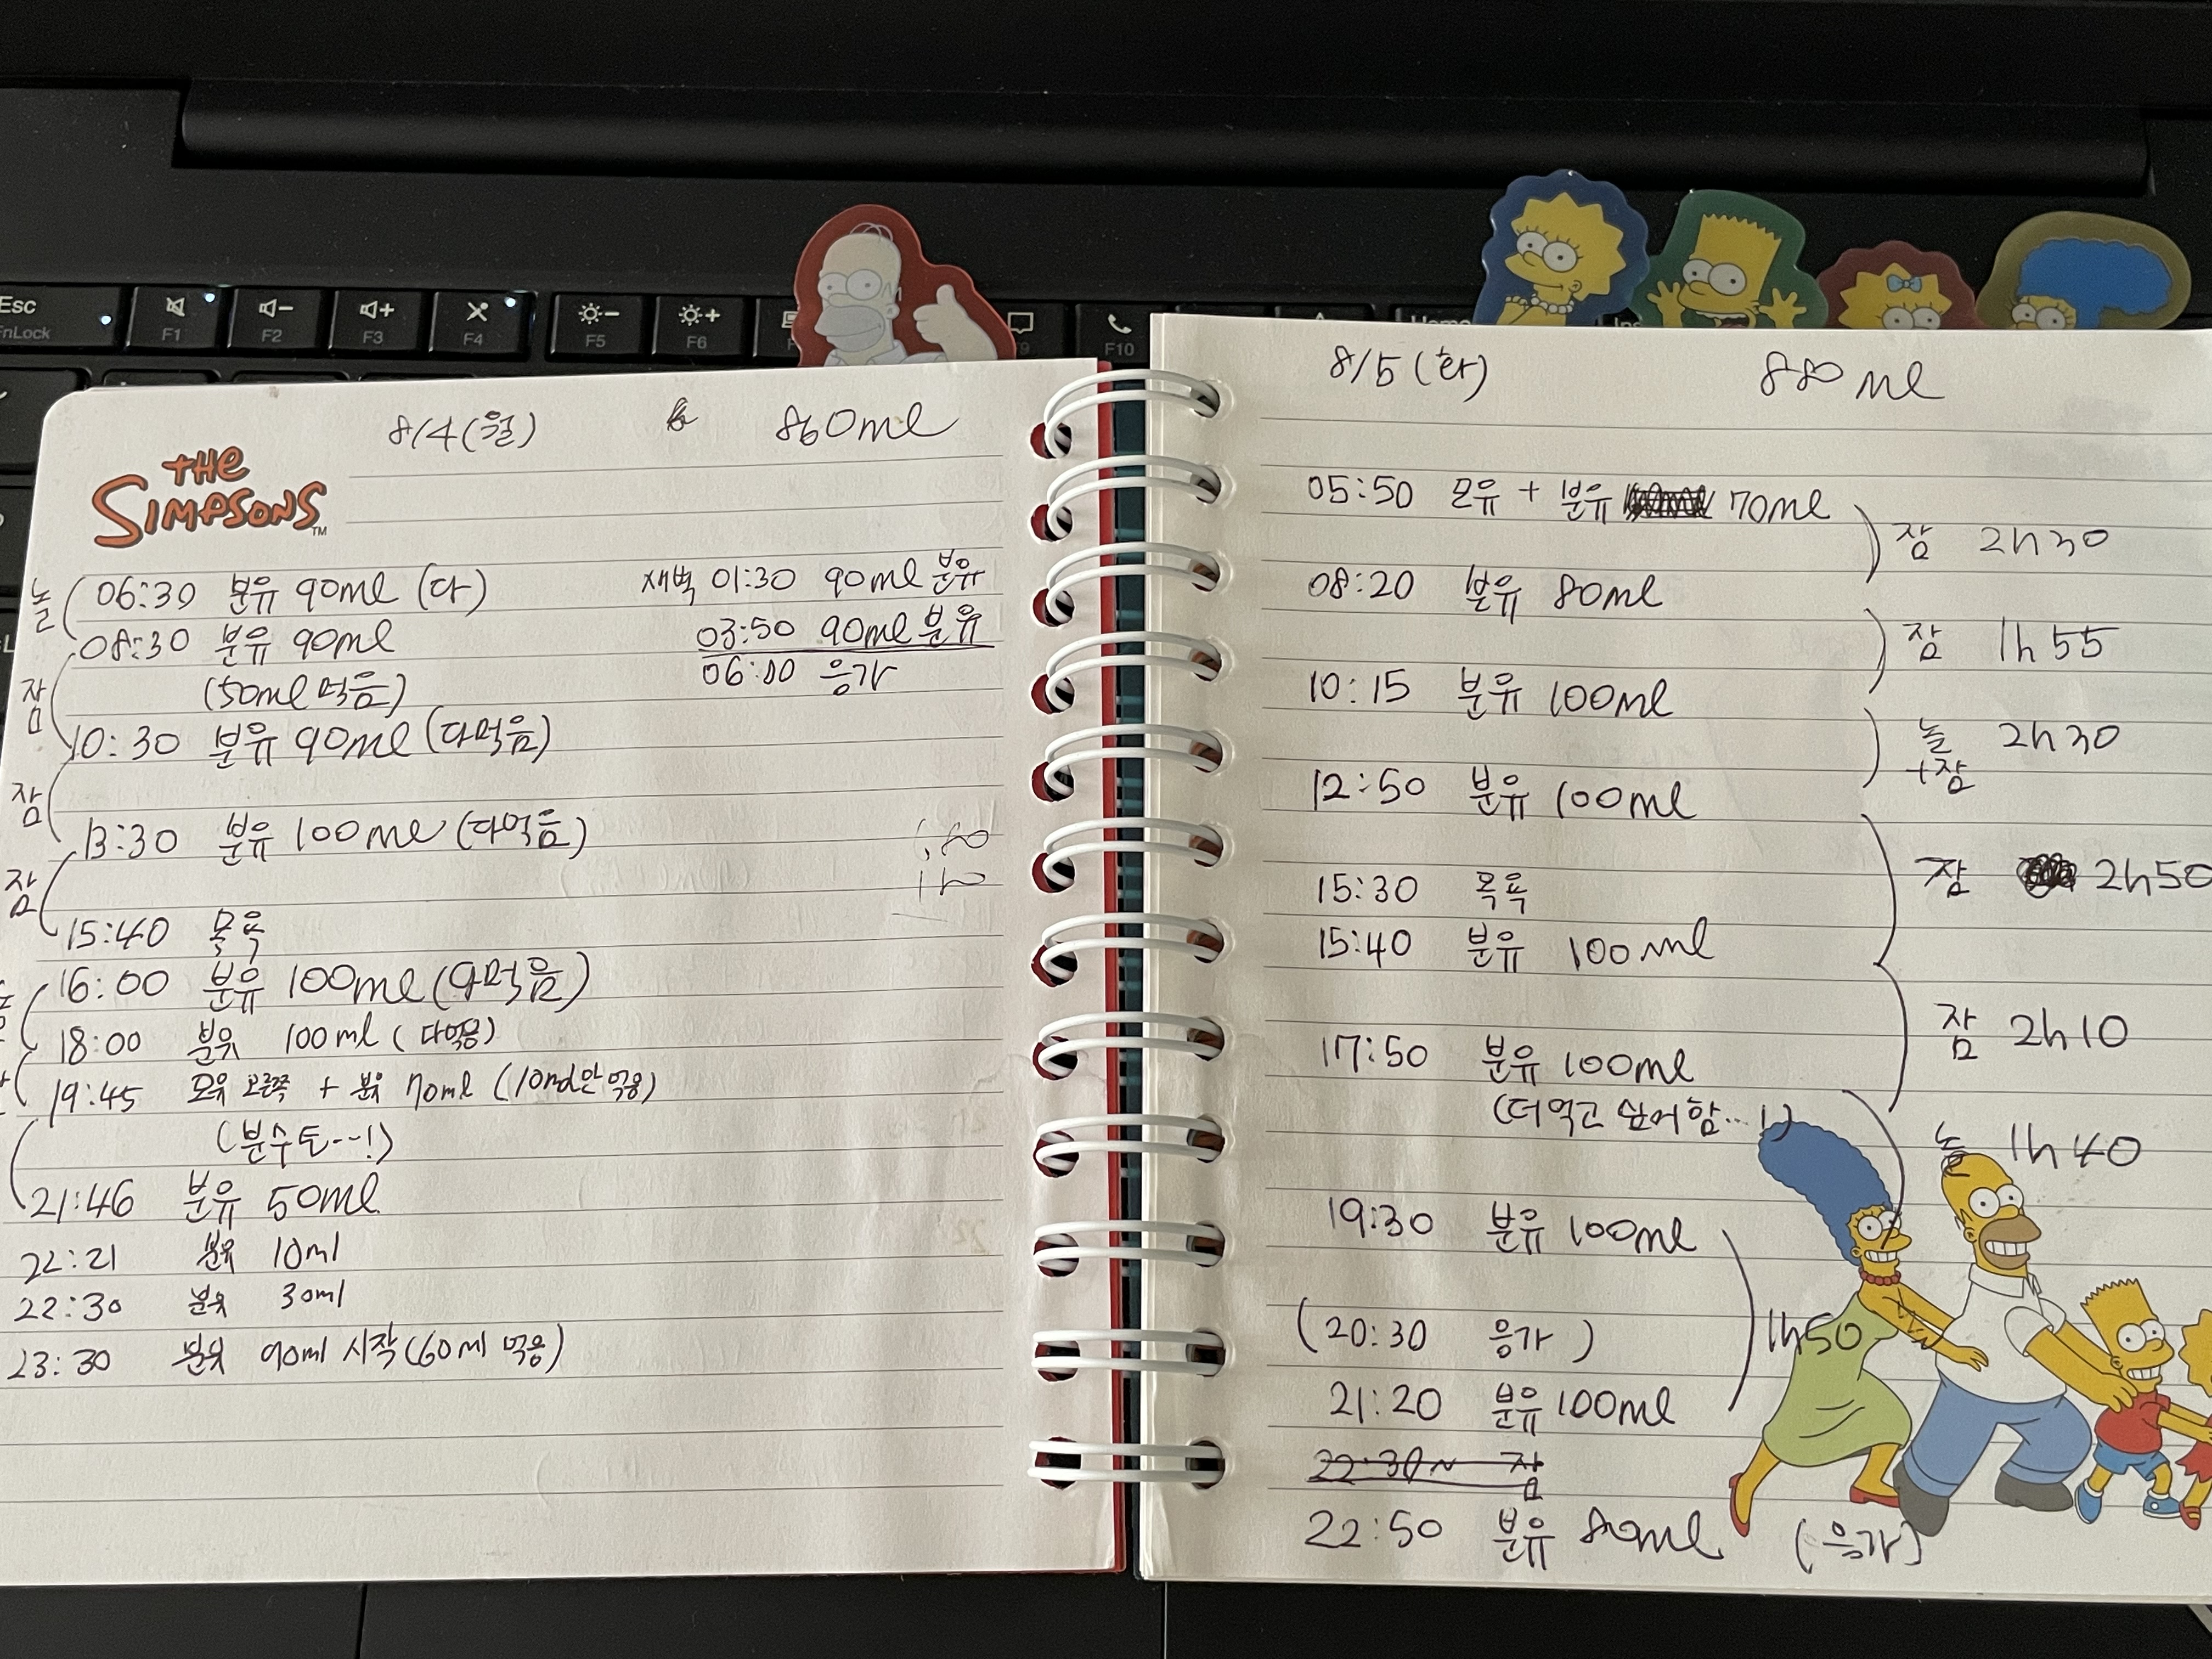 Esc
FnLock
F1
F2
F3
F4
F5
F6
F10
Home
Ins
8/4(월) 860ml
THE
SIMPSONS
TM
놀 06:30 분유 90ml (다) 새벽 01:30 90ml 분유
08:30 분유 90ml 03:50 90ml 분유
잠 (50ml 먹음) 06:00 응가
10:30 분유 90ml (다먹음)
잠
13:30 분유 100ml (다먹음)
잠
15:40 목욕
16:00 분유 100ml (다먹음)
18:00 분유 100ml (다먹음)
19:45 모유 오른쪽 + 분유 70ml (10ml만 먹음)
(분수토--!)
21:46 분유 50ml
22:21 분유 10ml
22:30 분유 30ml
23:30 분유 90ml 시작 (60ml 먹음)
8/5 (화) 880ml
05:50 모유 + 분유 70ml
잠 2h30
08:20 분유 80ml
잠 1h55
10:15 분유 100ml
놀 2h30
+잠
12:50 분유 100ml
15:30 목욕 잠 2h50
15:40 분유 100ml
잠 2h10
17:50 분유 100ml
(더 먹고 싶어함...!)
놀 1h40
19:30 분유 100ml
(20:30 응가) 1h50
21:20 분유 100ml
22:30~ 잠
22:50 분유 80ml (응가)